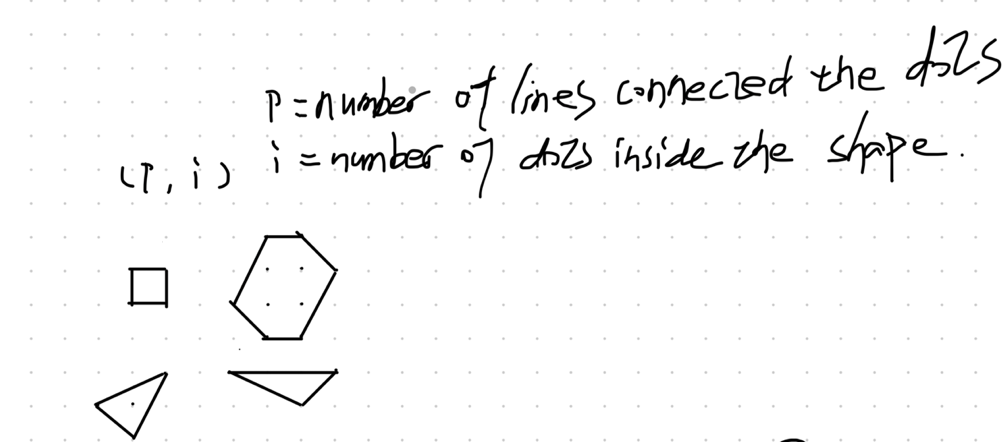 P = number of lines connected the dots
i = number of dots inside the shape.
(P, i)